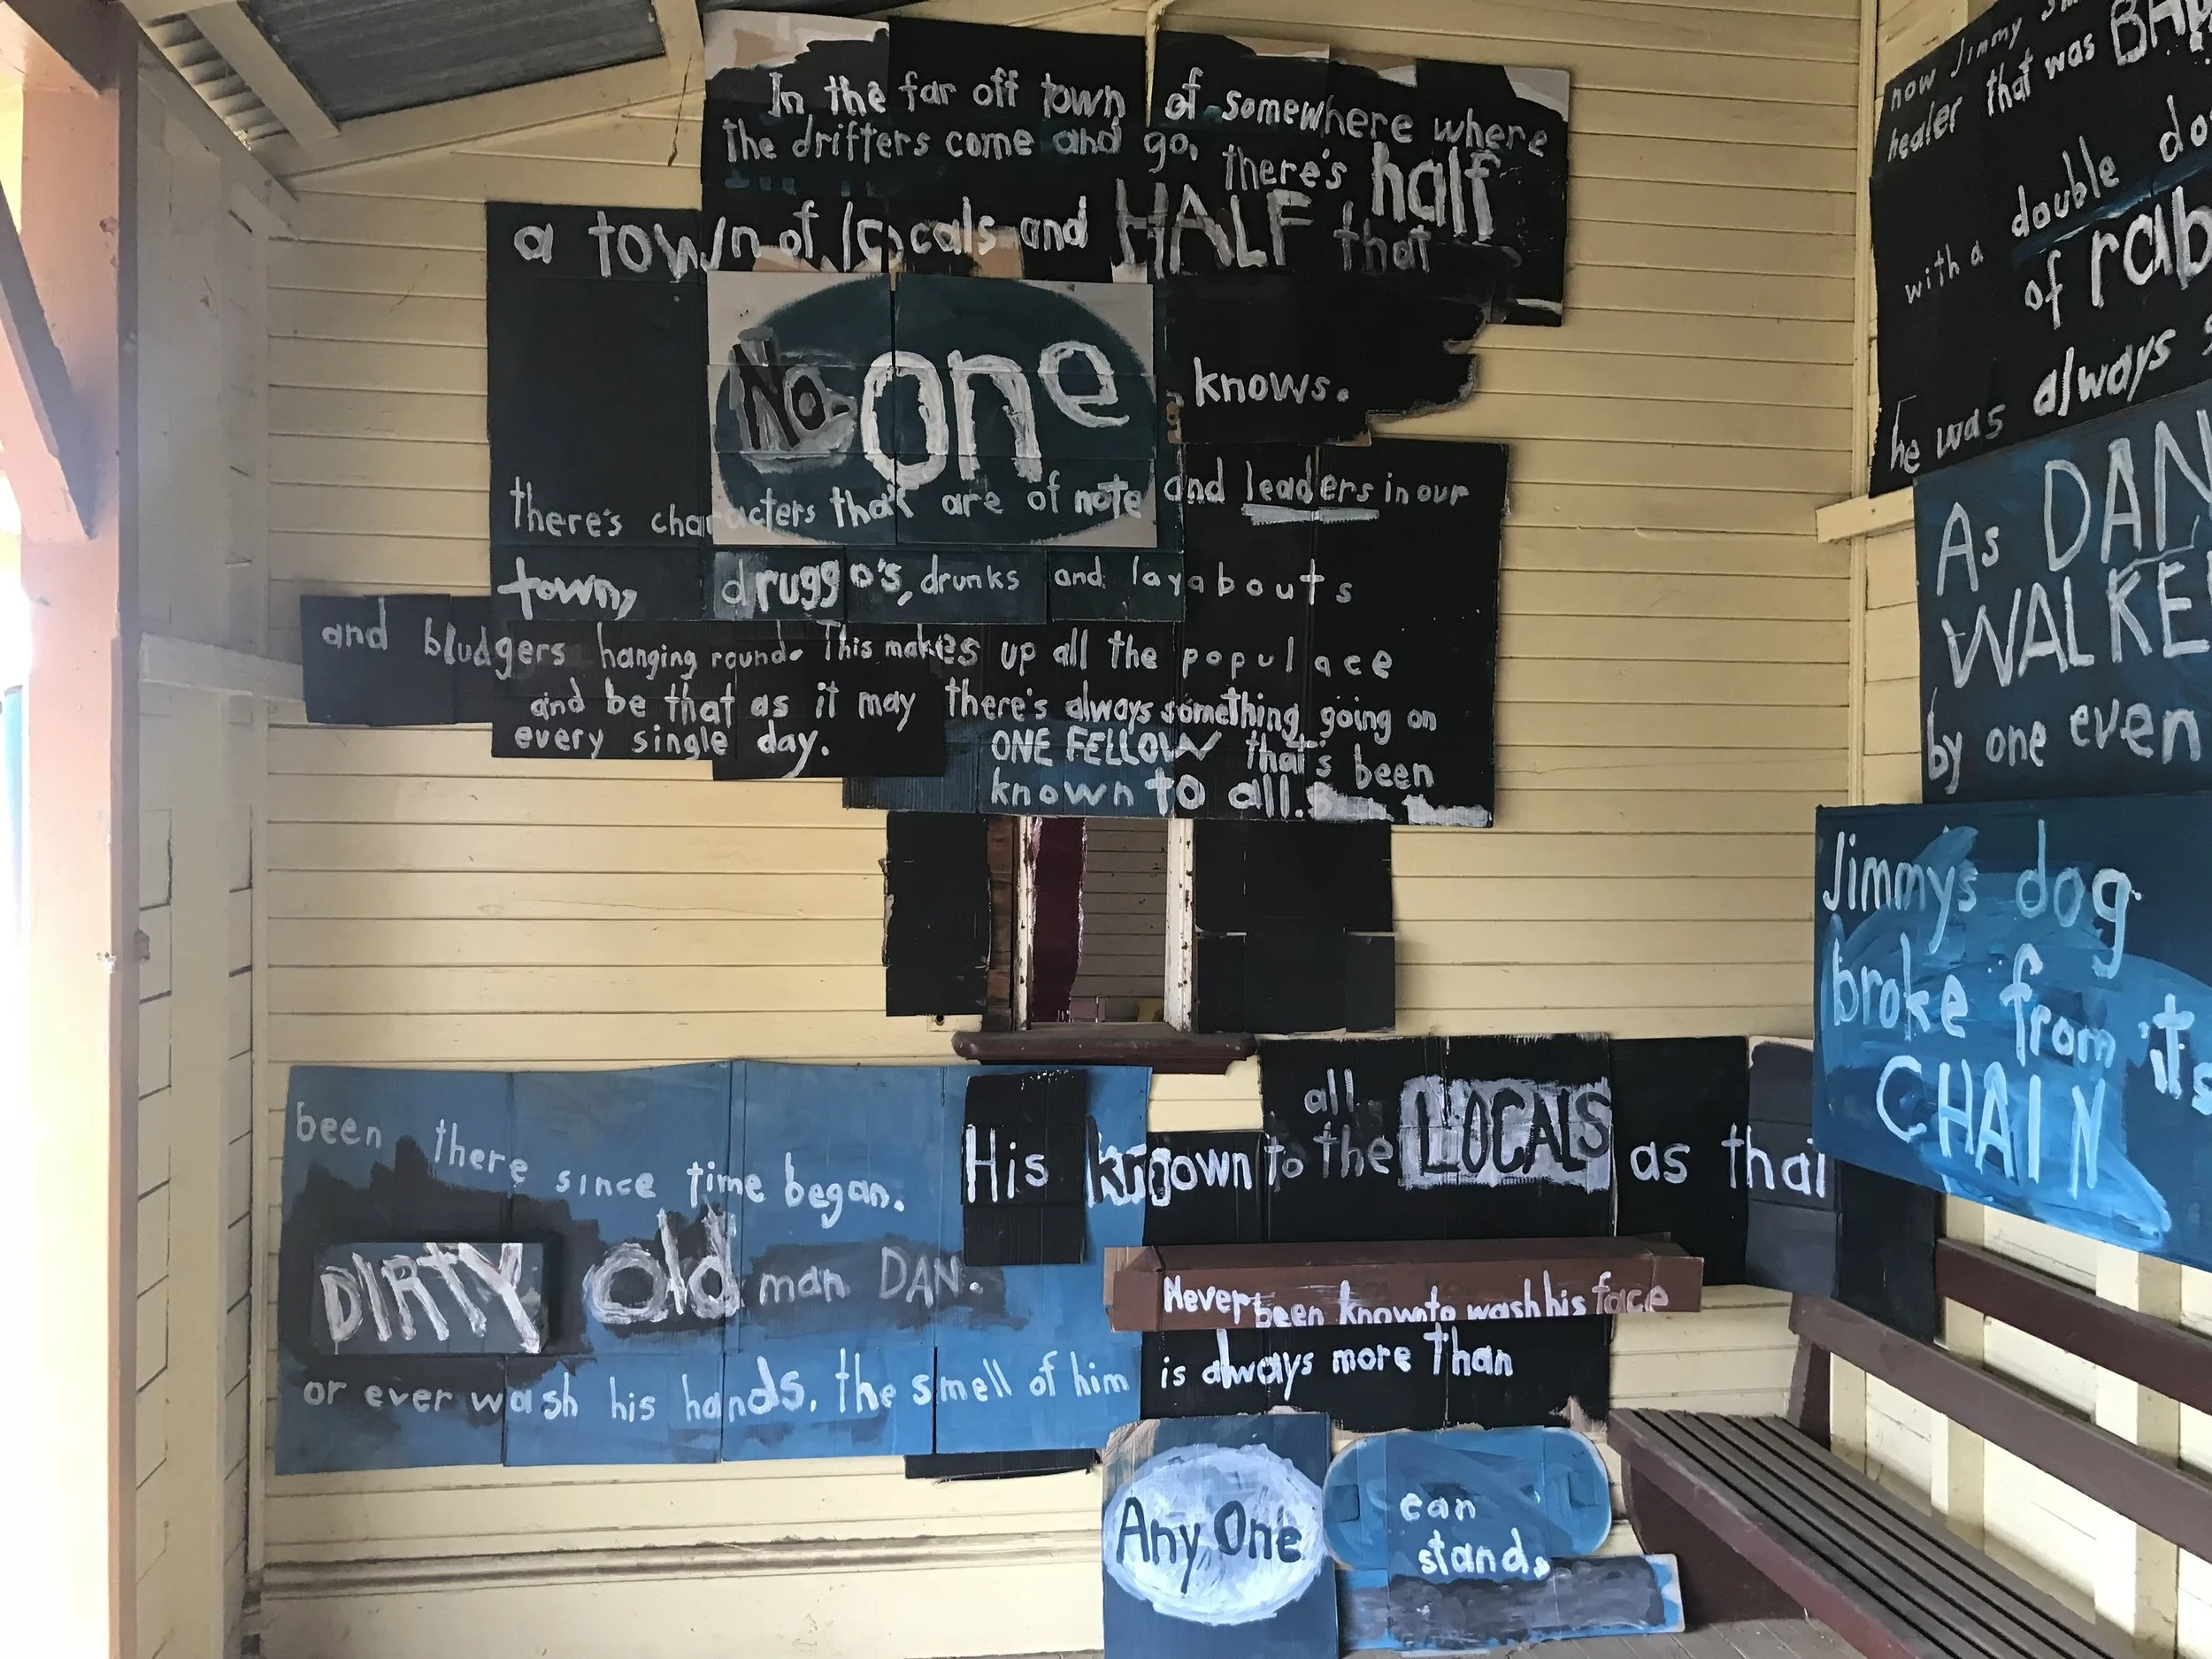 In the far off town of somewhere where
the drifters come and go, there's half
a town of locals and HALF that
No one knows.
there's characters that are of note and leaders in our
town, druggo's, drunks and layabouts
and bludgers hanging round. This makes up all the populace
and be that as it may there's always something going on
every single day. ONE FELLOW that's been
known to all.
been there since time began. His known to all the LOCALS as that
DIRTY old man DAN. Never been known to wash his face
or ever wash his hands. the smell of him is always more than
Any One can
stand.
now Jimmy
healer that was
with a double
of
he was always
As DAN
by one even
Jimmys dog
broke from it's
CHAIN